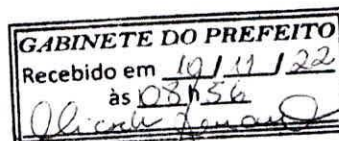 GABINETE DO PREFEITO
Recebido em 10 / 11 / 22
às 08h56